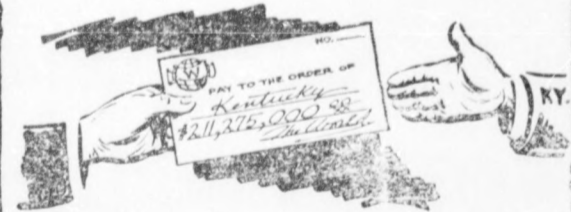 NO.
W
PAY TO THE ORDER OF
Kentucky
$211,275,000 00
The World
KY.